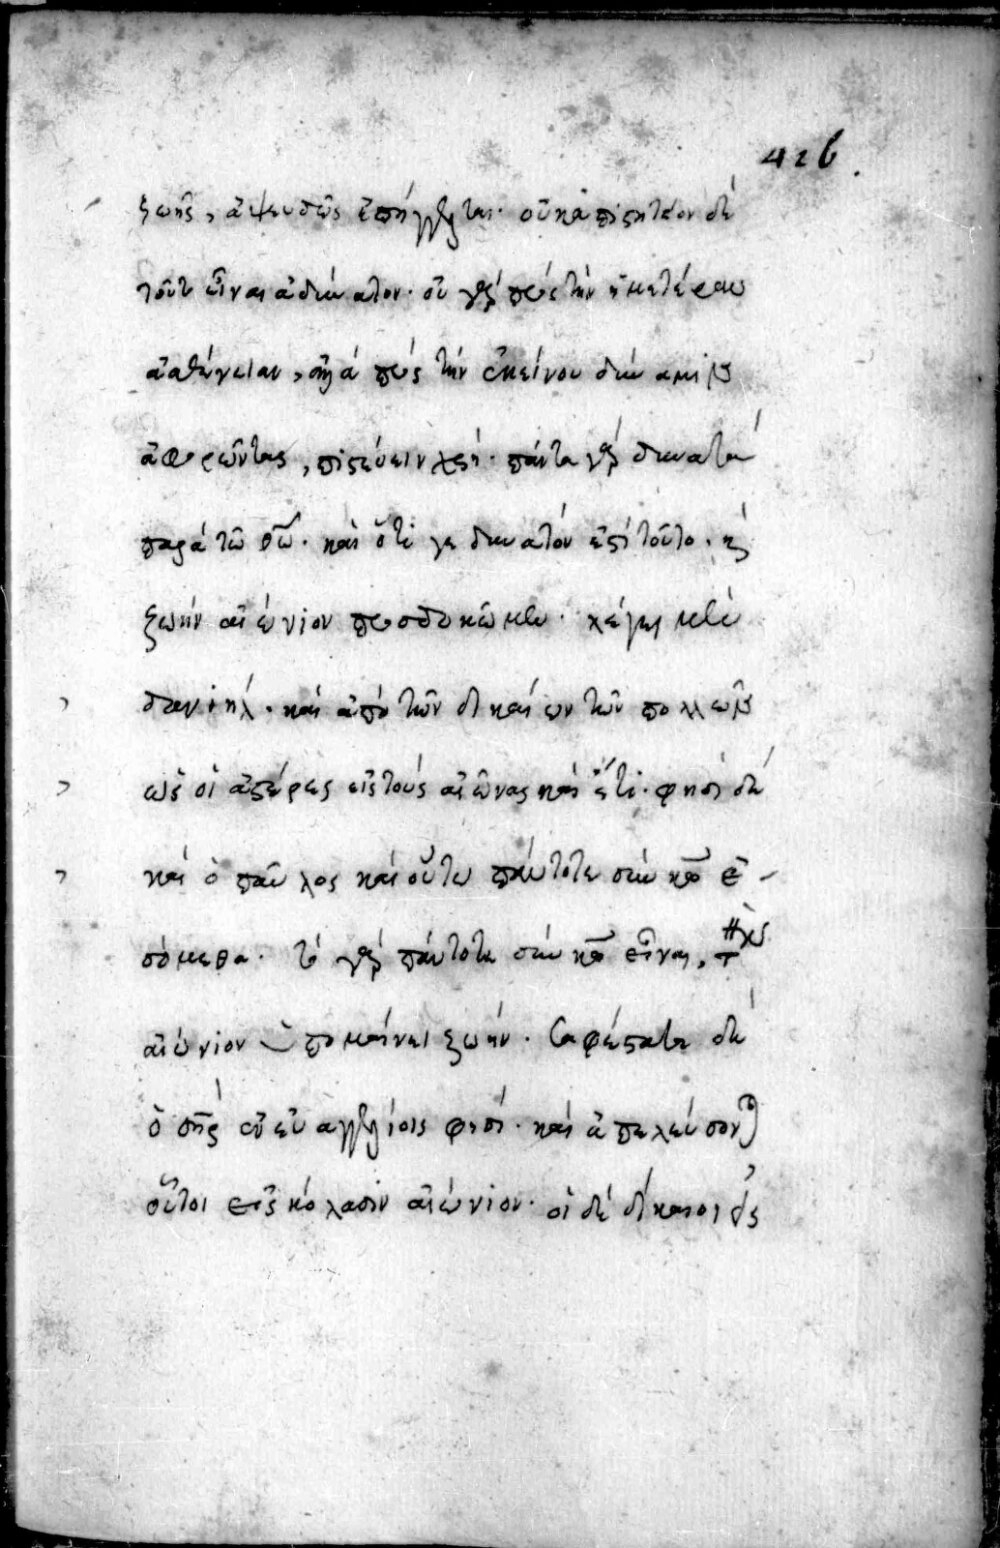 426
ζωῆς, ἀψευδῶς ἐπήγγελται. οὐκ ἀπιστητέον δὲ
τοῦτο εἶναι ἀδύνατον. οὐ γὰρ πρὸς τὴν ἡμετέραν
ἀσθένειαν, ἀλλὰ πρὸς τὴν ἐκείνου δύναμιν
ἀφορῶντας, πιστεύειν χρή. πάντα γὰρ δυνατὰ
παρὰ τῶ θῶ. καὶ ὅτί γε δυνατόν ἐστί τοῦτο. καὶ
ζωὴν αἰώνιον προσδοκῶμεν. λέγει μὲν
δανιήλ. καὶ ἀπὸ τῶν δικαίων τῶν πολλῶν
ὡς οἱ ἀστέρες εἰς τοὺς αἰῶνας καὶ ἔτι. φησὶ δὲ
καὶ ὁ παῦλος καὶ οὕτω πάντοτε σὺν κῶ ἐ-
σόμεθα. τὸ γὰρ πάντοτε σὺν κῶ εἶναι, τὴν
αἰώνιον ὑπομαίνει ζωήν. σαφέστατα δὲ
ὁ σὴρ ἐν εὐαγγελίοις φησί. καὶ ἀπελεύσονται
οὗτοι εἰς κόλασιν αἰώνιον. οἱ δὲ δίκαιοι εἰς